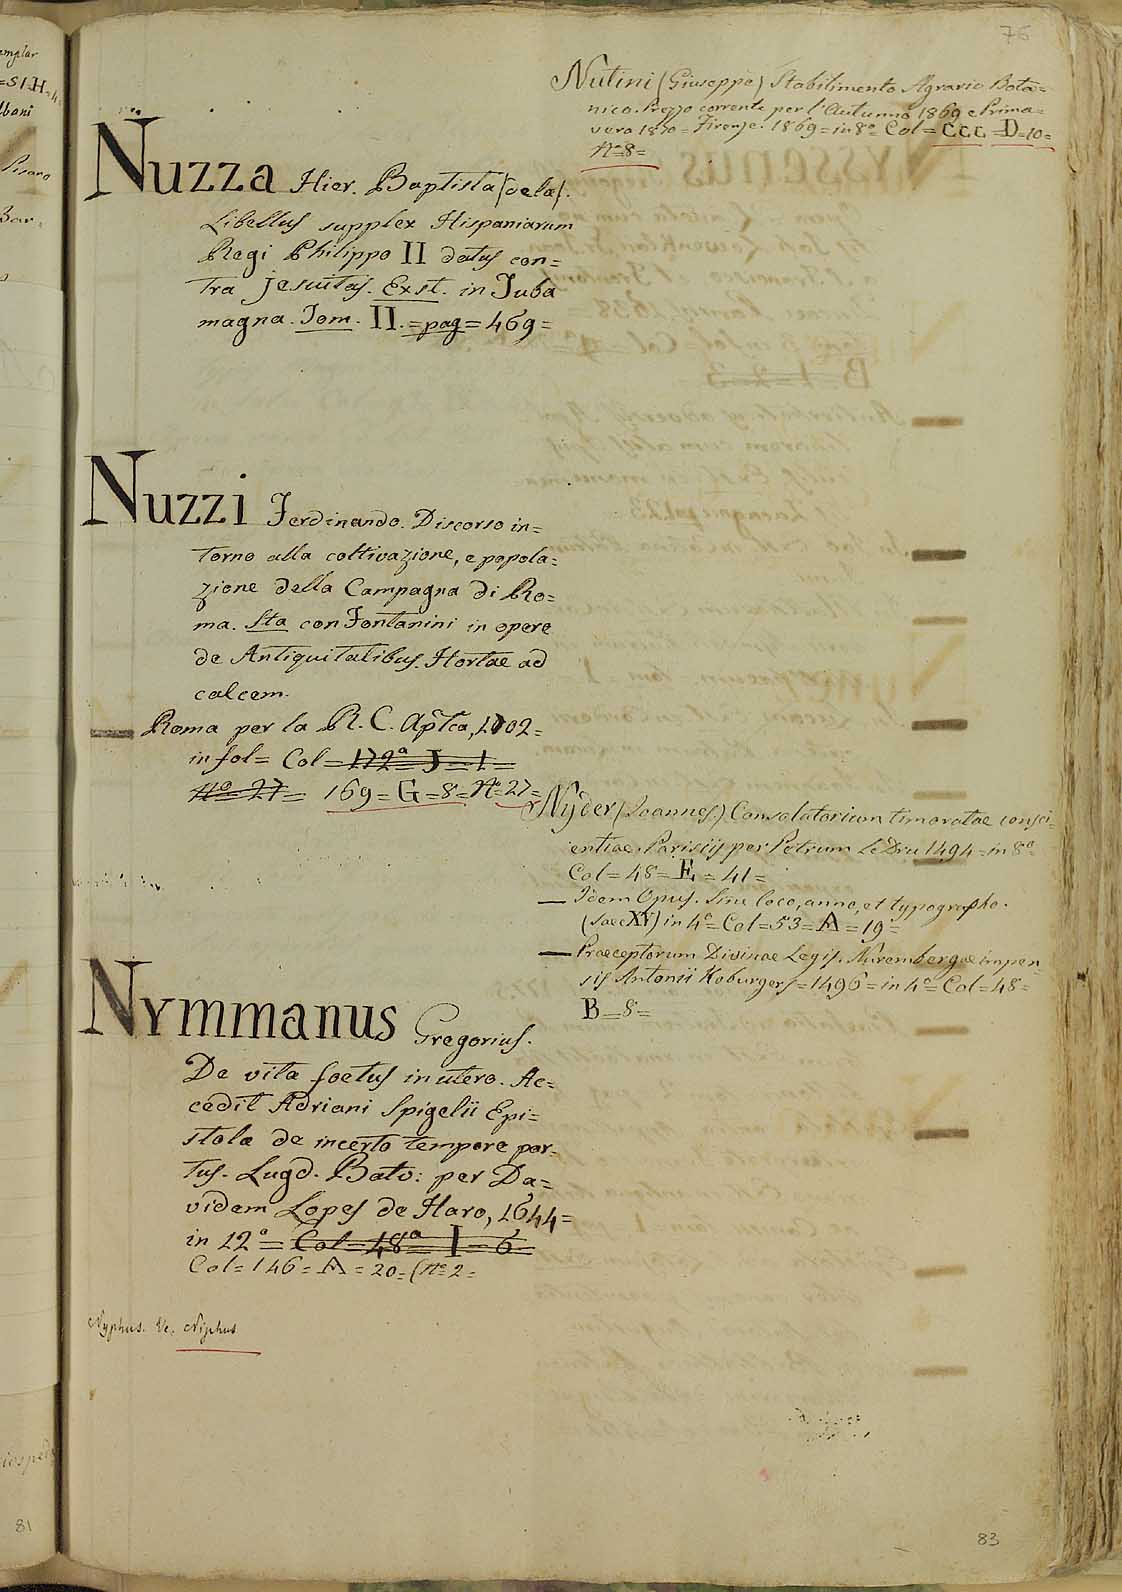 76
Nutini (Giuseppe) Stabilimento Agrario Bota=
nico. Prezzo corrente per l'Autunno 1869 e Prima=
vera 1870 = Firenze. 1869 = in 8º Col = CCC = D = 10 =
Nº 8 =
Nuzza Hier. Baptista (de la).
Libellus supplex Hispaniarum
Regi Philippo II datus con=
tra Jesuitas. Exst. in Tuba
magna. Tom. II. = pag = 469 =
Nuzzi Ferdinando. Discorso in=
torno alla coltivazione, e popola=
zione della Campagna di Ro=
ma. Sta con Fontanini in opere
de Antiquitatibus Hortae ad
calcem.
— Roma per la R. C. Apľca, 1702 =
in fol = Col = 172ª J = 1 =
Nº 27 = 169 = G = 8 = Nº 27 =
Nyder (Joannes) Consolatorium timoratae consci=
entiae. Parisiis per Petrum Le Dru 1494 = in 8º
Col = 48 = E = 41 =
— Idem Opus. Sine loco, anno, et typographo.
(saec XV) in 4º = Col = 53 = A = 19 =
— Praeceptorum Divinae Legis. Nurembergae impen=
sis Antonii Koburgers = 1496 = in 4º = Col = 48 =
B = 8 =
Nymmanus Gregorius.
De vita foetus in utero. Ac=
cedit Adriani Spigelii Epi=
stola de incerto tempore par=
tus. Lugd. Batv: per Da=
videm Lopes de Haro, 1644 =
in 12º = Col = 48ª = I = 6 =
Col = 146 = A = 20 = (Nº 2 =
Nyphus. Ve. Niphus
81
83